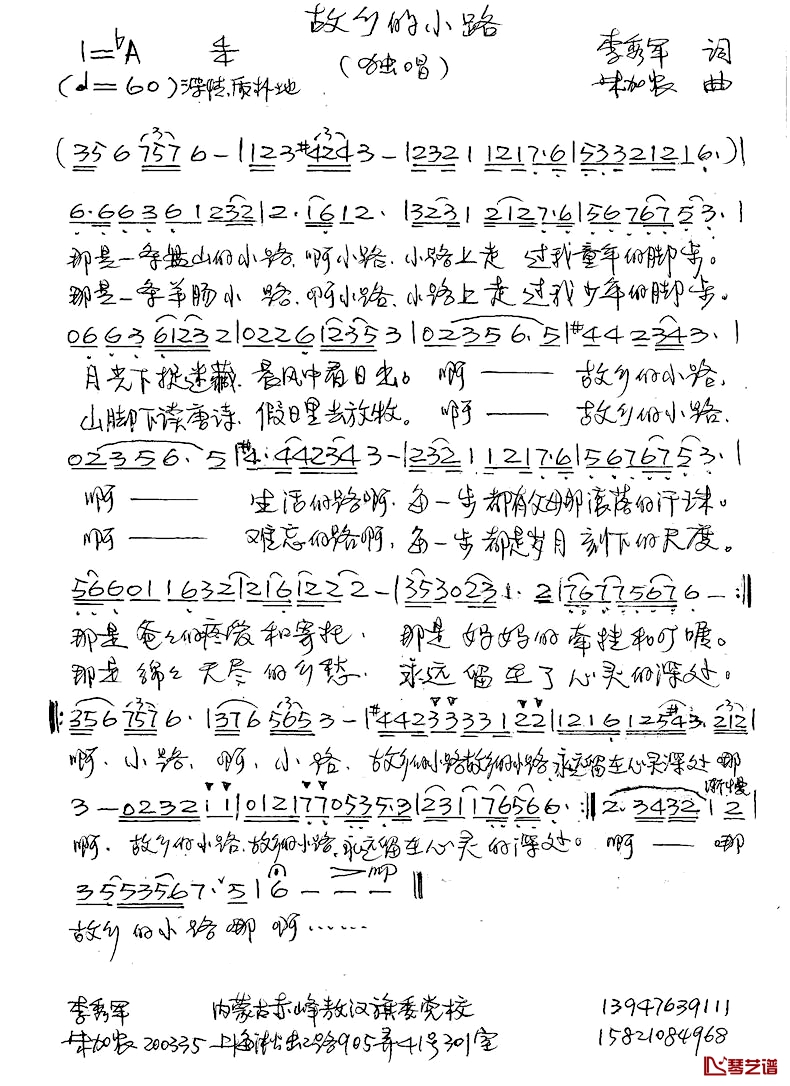 故乡的小路
(独唱)
1=♭A
李秀军 词
朱加农 曲
(d=60)深情、质朴地
(356 757 6-|123#4243-|23211217·6|53321216·)|
6·6636 1232|2·1612·|3231 2127·6|5676753·|
那是一条盘山的小路,啊小路,小路上走 过我童年的脚步。
那是一条羊肠小 路,啊小路,小路上走 过我少年的脚步。
0663 61232|022612353|02356·5|#442343·|
月光下捉迷藏,晨风中看日出。 啊—— 故乡的小路,
山脚下读唐诗,假日里去放牧。 啊—— 故乡的小路,
02356·5|#4·442343-|23211217·6|5676753·|
啊—— 生活的路啊,每一步都有父母那滚落的汗珠。
啊—— 难忘的路啊,每一步都是岁月刻下的尺度。
566011632|2161222-|353023 1· 2|76775676-:‖
那是爸爸的疼爱和寄托, 那是妈妈的牵挂和叮嘱。
那是绵绵无尽的乡愁, 永远留在了心灵的深处。
‖:356 7576·|376 5653-|#44233331 22|1216 125#43· 212|
啊,小路,啊,小路,故乡的小路故乡的小路,永远留在心灵深处 那
渐慢
3-0232 11|0121770535·3|2311765 66·:‖2·3432 1 2|
啊,故乡的小路,故乡的小路,永远留在心灵的深处。啊—— 那
3553567·ˇ5|6---‖
故乡的小路那 啊……
李秀军 内蒙古赤峰敖汉旗委党校 13947639111
朱加农 200335 上海淞虹路905弄41号301室 15821084968
琴艺谱